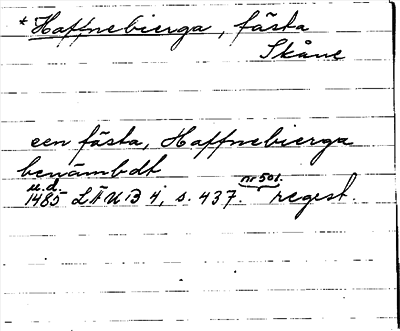 * Haffnebierga, fästa
Skåne
een fästa, Haffnebierga
benämbdt
u.d. nr 501.
1485 LÄUB 4, s. 437. regest.